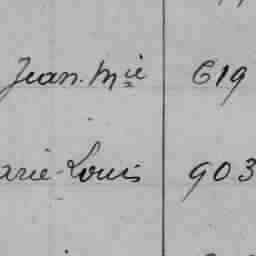 Jean. Mie 619
arie-Louis 903